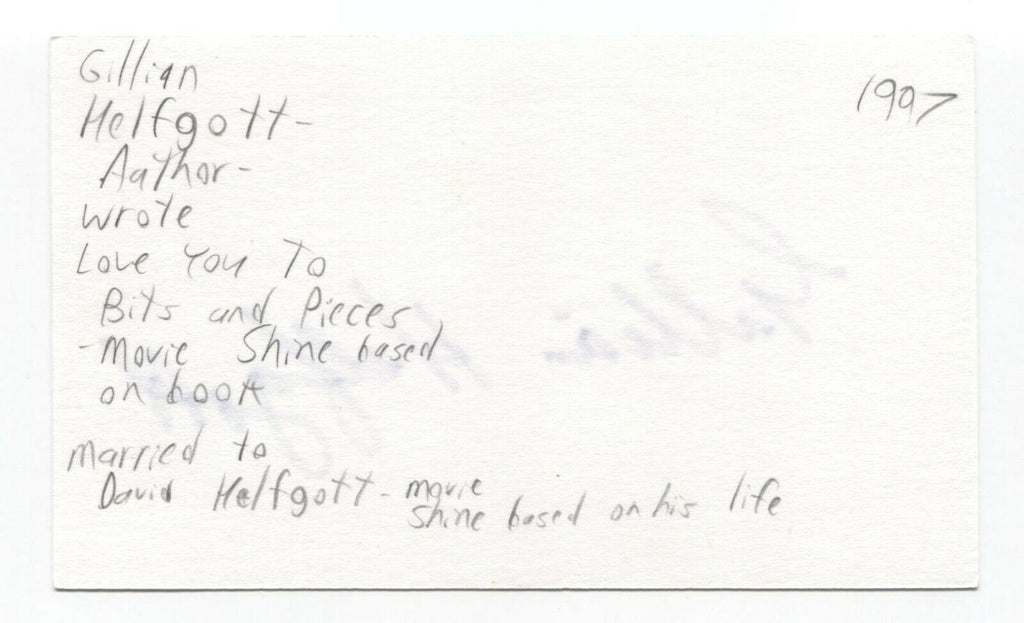 Gillian
Helfgott-
Author-
wrote
Love You To
Bits and Pieces
-Movie Shine based
on book
married to
David Helfgott - movie
Shine based on his life
1997